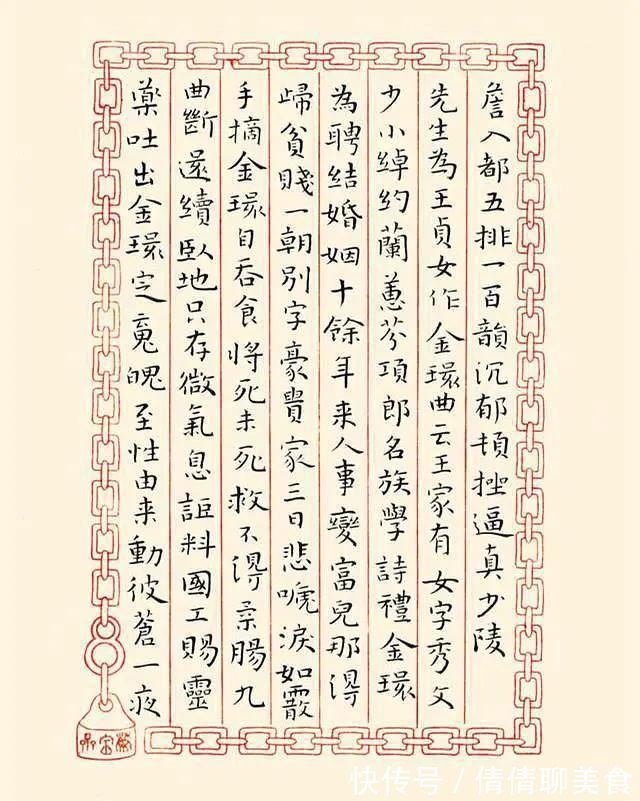 詹入都五排一百韻沉郁頓挫逼真少陵
先生為王貞女作金環曲云王家有女字秀文
少小綽約蘭蕙芬項郎名族學詩禮金環
為聘結婚姻十餘年来人事變富兒那得
歸貧賤一朝別字豪貴家三日悲嗁淚如霰
手摘金環自吞食將死未死救不得柔腸九
曲斷還續臥地只存微氣息詎料國工賜靈
藥吐出金環定魂魄至性由来動彼蒼一夜
快传号／倩倩聊美食